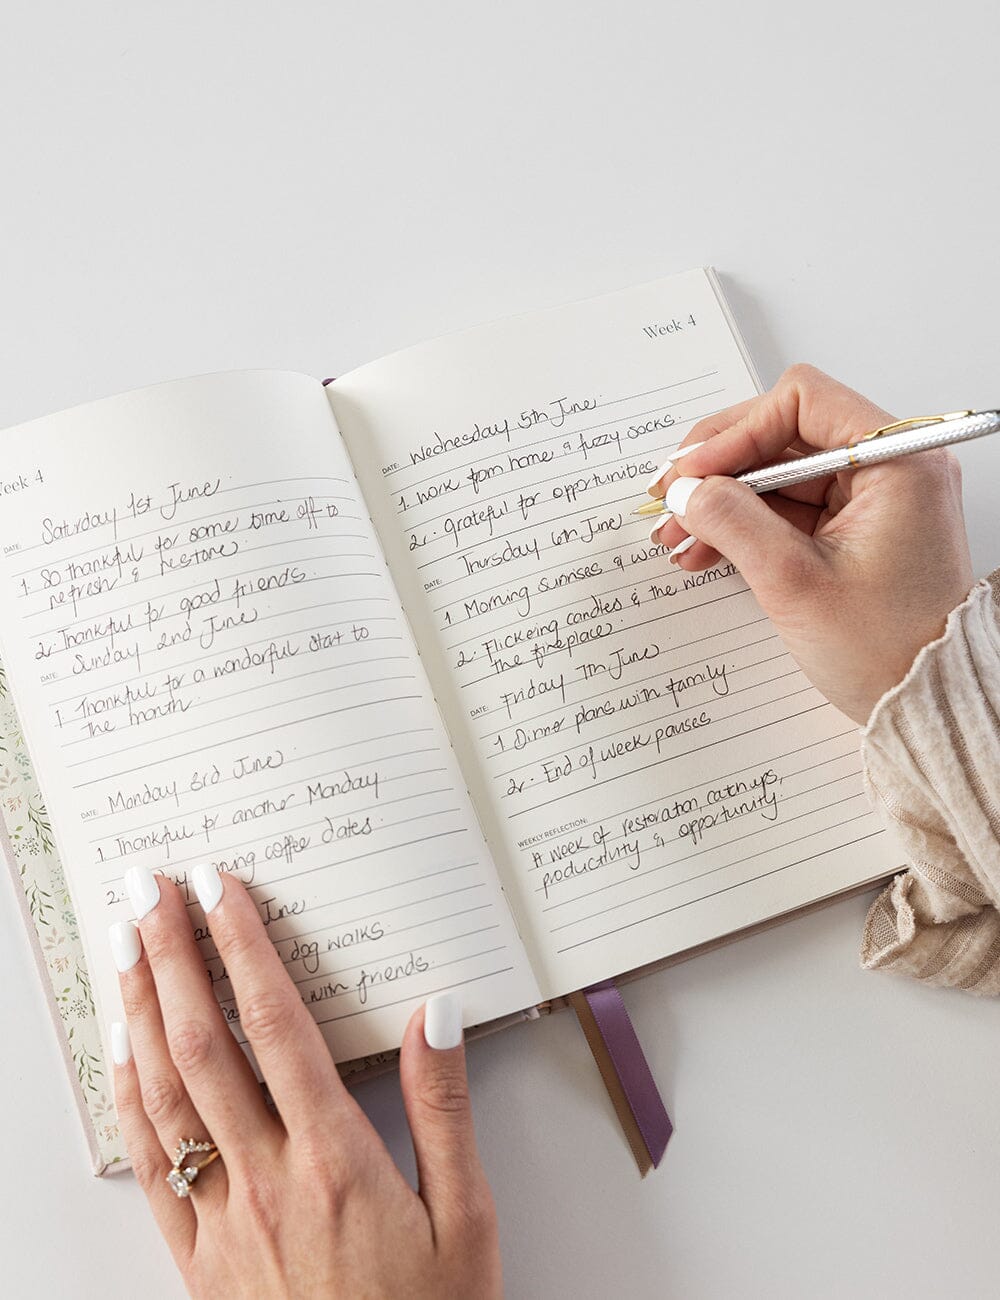 Week 4
DATE: Saturday 1st June
1. So thankful for some time off to
refresh & restore.
2. Thankful for good friends.
DATE: Sunday 2nd June
1. Thankful for a wonderful start to
the month.
DATE: Monday 3rd June
1. Thankful for another Monday
2. coffee dates.
June
dog walks.
with friends.
Week 4
DATE: Wednesday 5th June
1. Work from home & fuzzy socks.
2. Grateful for opportunities
DATE: Thursday 6th June
1 Morning sunrises &
2. Flickering candles & the warmth
the fireplace.
DATE: Friday 7th June
1 Dinner plans with family.
2. End of week pauses
WEEKLY REFLECTION:
A week of restoration, catch ups,
productivity & opportunity.